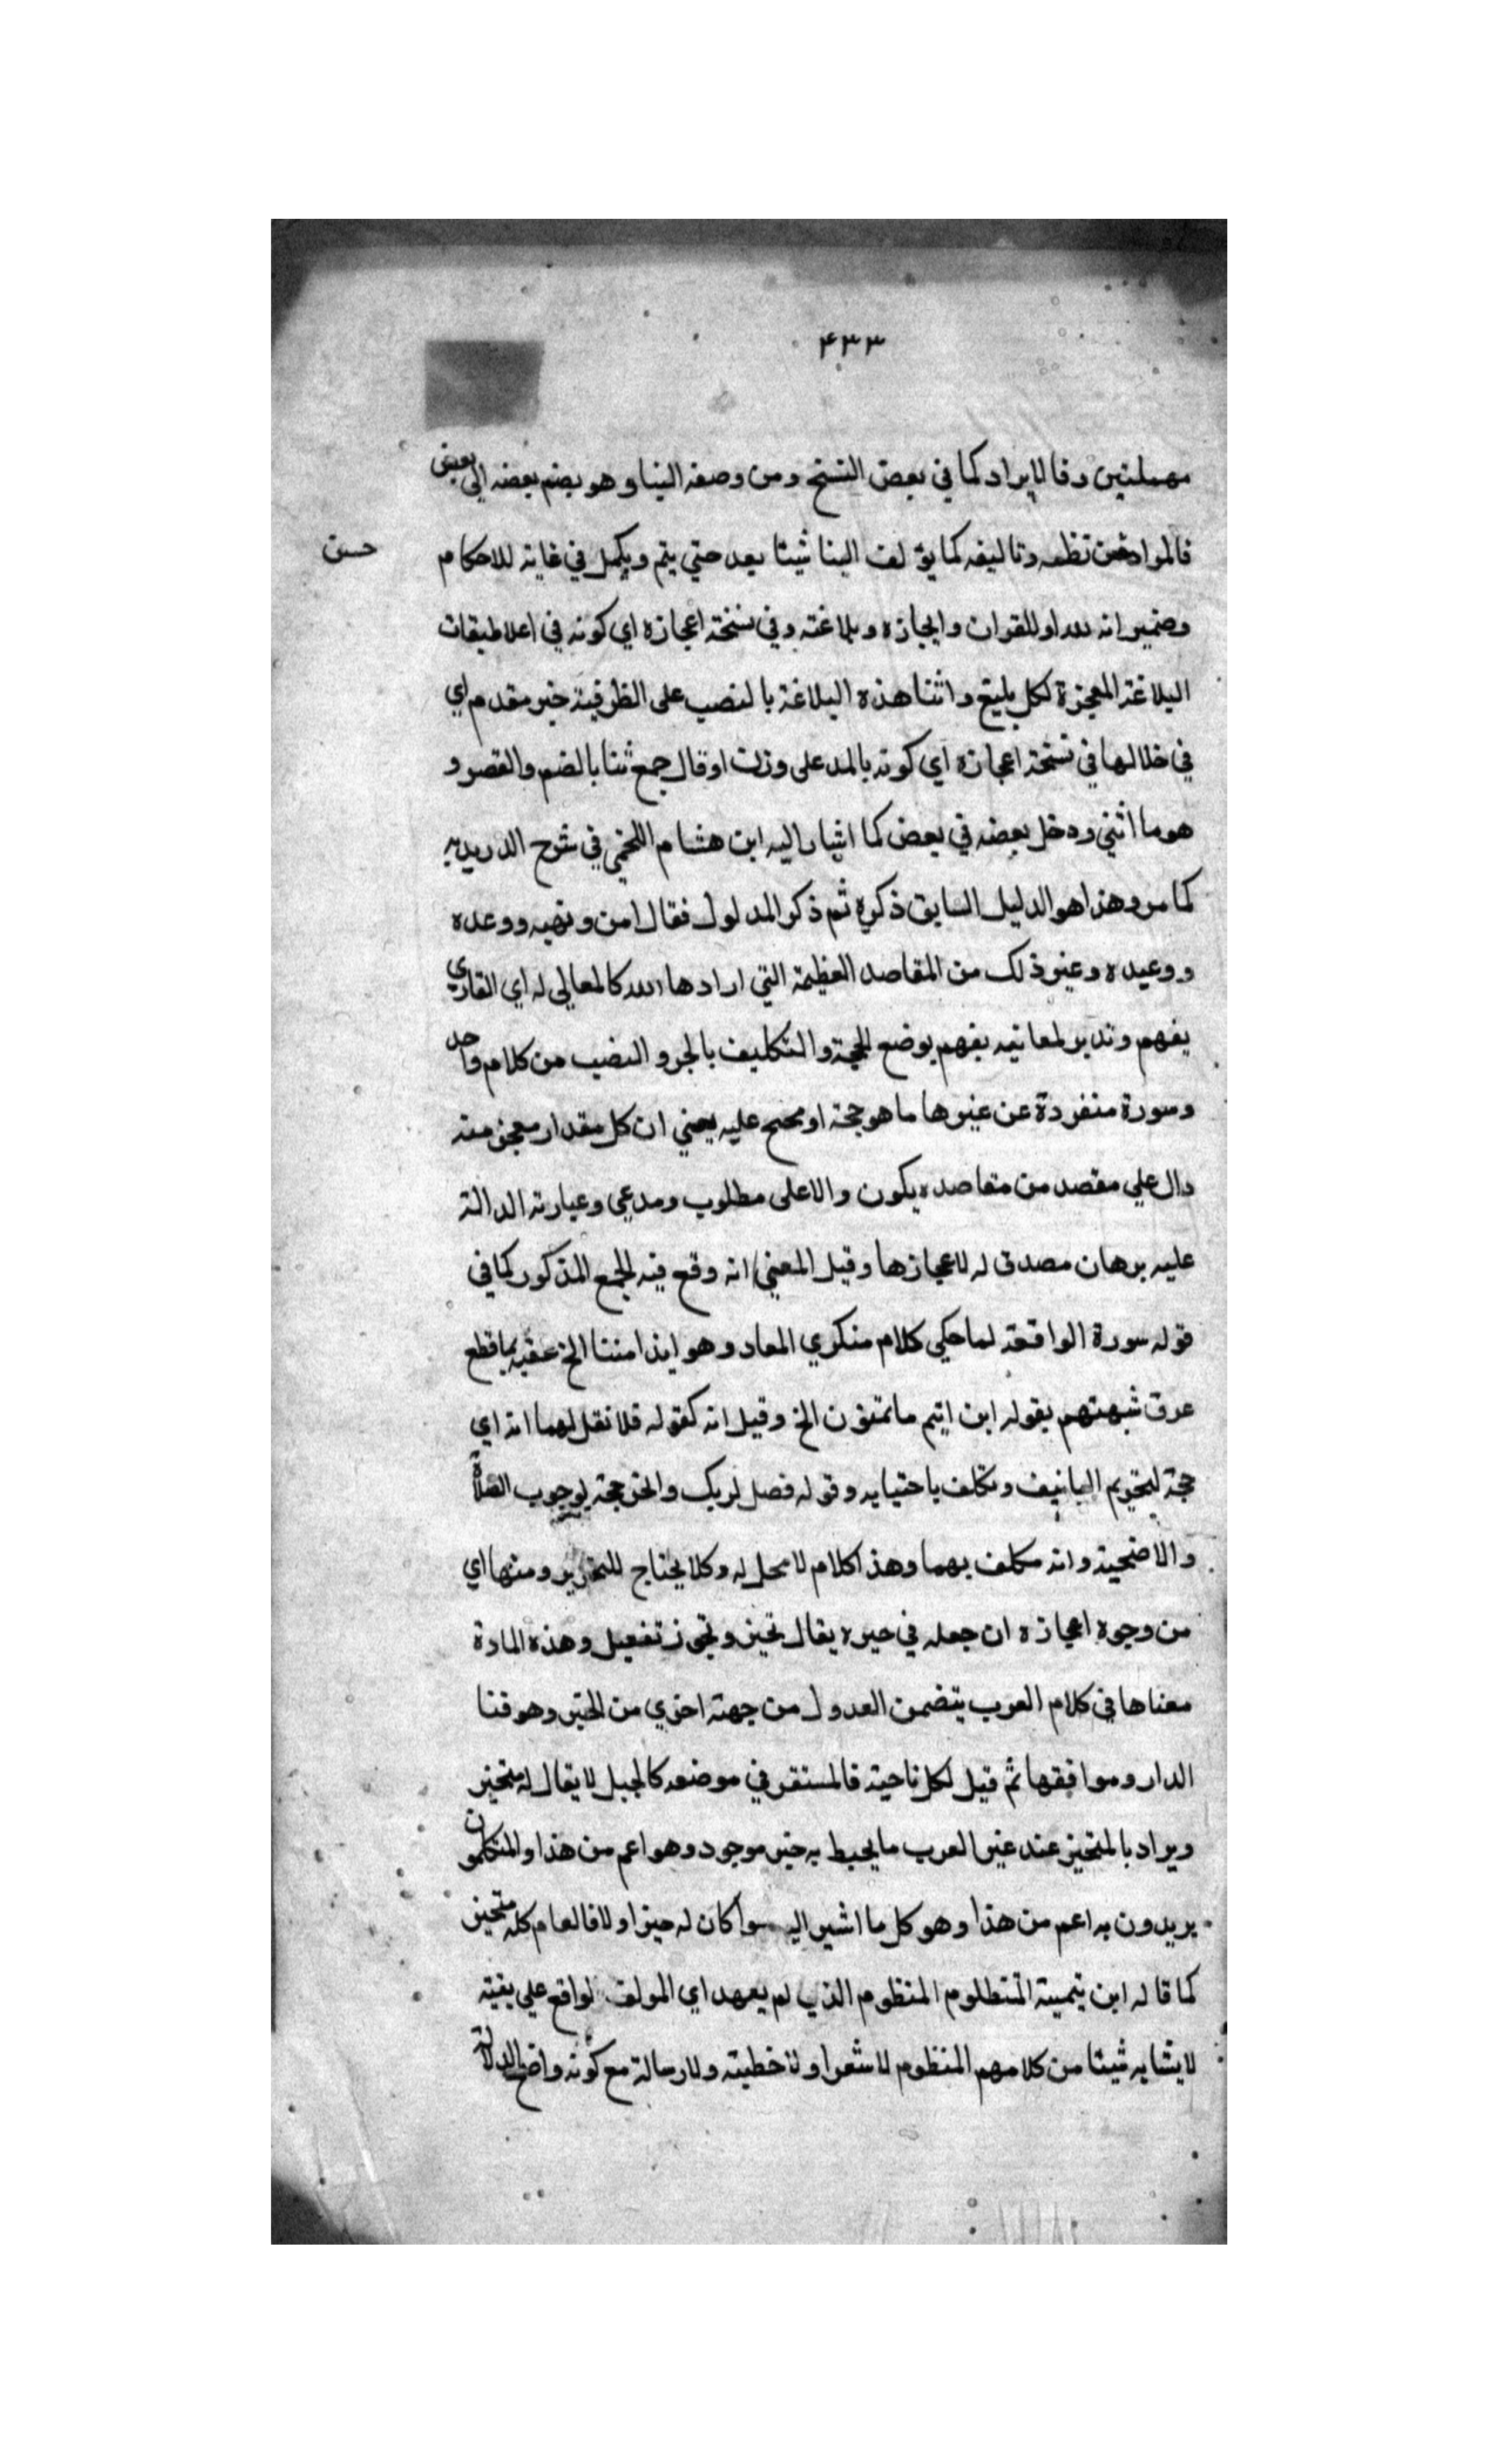 ۴۳۳
مهملتين وفا لايراد كما في بعض النسخ ومن وصفه البنا وهو بضم بعضه الى بعض
فالمراد حسن نظمه وتاليفه كما يؤلف البنا شيئا بعد حتي يتم ويكمل في غاية للاحكام
حسن
وضمير انه لله او للقران وايجازه وبلاغته وفي نسخة اعجازه اي كونه في اعلا طبقات
البلاغة المعجزة لكل بليغ واثنا هذه البلاغة بالنصب على الظرفية خبر مقدم اي
في خلالها في نسخة اعجازه اي كونه بالمد على وزن اوقال جمع ثنا بالضم والقصر و
هو ما اثني ودخل بعضه في بعض كما اشار اليه ابن هشام اللخمي في شرح الدريديه
كما مر وهذا هو الدليل السابق ذكره ثم ذكر المدلول فقال امن ونهيه ووعده
ووعيده وغير ذلك من المقاصد العظيمة التي ارادها الله كالمعالي له اي القاري
يفهم وتدبر لمعانيه يفهم بوضع الحجة والتكليف بالجر والنصب من كلام واحد
وسورة منفردة عن غيرها ما هو حجة او محتج عليه يعني ان كل مقدار معجز منه
دال علي مقصد من مقاصده يكون والاعلى مطلوب ومدعي وعبارته الدالة
عليه برهان مصدق له لاعجازها وقيل المعني انه وقع فيه الجمع المذكور كما في
قوله سورة الواقعة لما حكي كلام منكري المعاد وهو ايذا متنا الخ عقبه بما قطع
عرق شبهتهم بقوله افرايتم ما تمنون الخ وقيل انه كقوله فلا تقل لهما انه اي
حجة لتحريم التانيف وتكلف باحتيايه وقوله فصل لربك وانحر حجة لوجوب الصلاة
والاضحية وانه مكلف بهما وهذا كلام لا محل له وكلا يحتاج للتحرير ومنها اي
من وجوه اعجازه ان جعله في حيزه يقال تحيز وتحوز تفعيل وهذه المادة
معناها في كلام العرب يتضمن العدول من جهة اخري من الحيز وهو فنا
الدار وموافقها ثم قيل لكل ناحية فالمستقر في موضعه كالجبل لا يقال له متحيز
ويراد بالمتحيز عند غير العرب ما يحيط به حيز موجود وهو اعم من هذا والمتكلمون
يريدون به اعم من هذا وهو كل ما اشير اليه سوا كان له حيز او لا فالعام كله متحيز
كما قاله ابن تيمية المنطلوم المنظوم الذي لم يعهد اي المولف لواقع علي بقية
لا يشابه شيئا من كلامهم المنظوم لا شعرا ولا خطبة ولا رسالة مع كونه واضح الدلالة